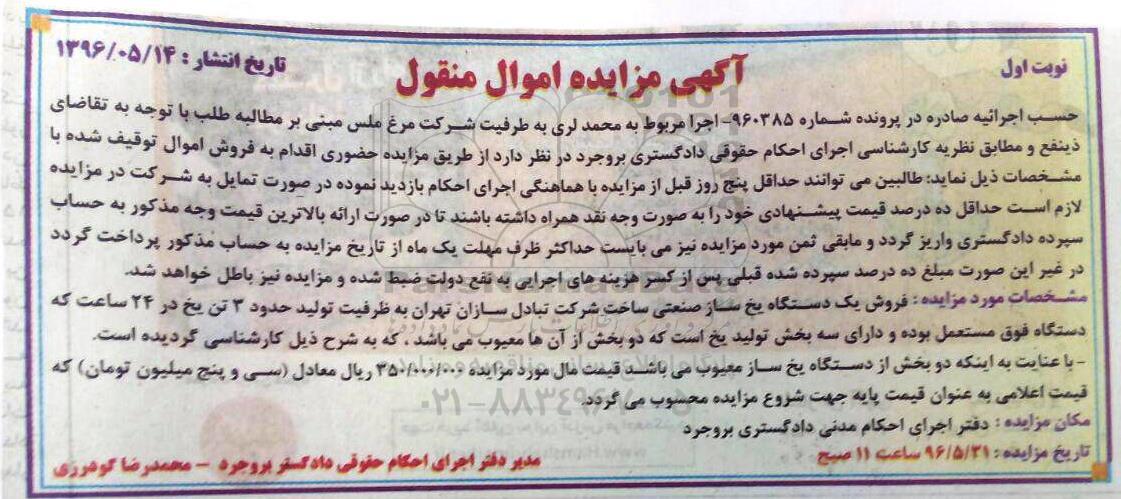 نوبت اول
آگهی مزایده اموال منقول
تاریخ انتشار : ۱۳۹۶/۰۵/۱۴
حسب اجرائیه صادره در پرونده شماره ۹۶۰۳۸۵- اجرا مربوط به محمد لری به طرفیت شرکت مرغ ملس مبنی بر مطالبه طلب با توجه به تقاضای
ذینفع و مطابق نظریه کارشناسی اجرای احکام حقوقی دادگستری بروجرد در نظر دارد از طریق مزایده حضوری اقدام به فروش اموال توقیف شده با
مشخصات ذیل نماید: طالبین می توانند حداقل پنج روز قبل از مزایده با هماهنگی اجرای احکام بازدید نموده در صورت تمایل به شرکت در مزایده
لازم است حداقل ده درصد قیمت پیشنهادی خود را به صورت وجه نقد همراه داشته باشند تا در صورت ارائه بالاترین قیمت وجه مذکور به حساب
سپرده دادگستری واریز گردد و مابقی ثمن مورد مزایده نیز می بایست حداکثر ظرف مهلت یک ماه از تاریخ مزایده به حساب مذکور پرداخت گردد
در غیر این صورت مبلغ ده درصد سپرده شده قبلی پس از کسر هزینه های اجرایی به نفع دولت ضبط شده و مزایده نیز باطل خواهد شد.
مشخصات مورد مزایده : فروش یک دستگاه یخ ساز صنعتی ساخت شرکت تبادل سازان تهران به ظرفیت تولید حدود ۳ تن یخ در ۲۴ ساعت که
دستگاه فوق مستعمل بوده و دارای سه بخش تولید یخ است که دو بخش از آن ها معیوب می باشد ، که به شرح ذیل کارشناسی گردیده است.
- با عنایت به اینکه دو بخش از دستگاه یخ ساز معیوب می باشد قیمت مال مورد مزایده ۳۵۰/۰۰۰/۰۰۰ ریال معادل (سی و پنج میلیون تومان) که
قیمت اعلامی به عنوان قیمت پایه جهت شروع مزایده محسوب می گردد.
مکان مزایده : دفتر اجرای احکام مدنی دادگستری بروجرد
تاریخ مزایده : ۹۶/۵/۳۱ ساعت ۱۱ صبح
مدیر دفتر اجرای احکام حقوقی دادگستر بروجرد - محمدرضا گودرزی
۰۲۱-۸۸۳۴۹۶۷۰